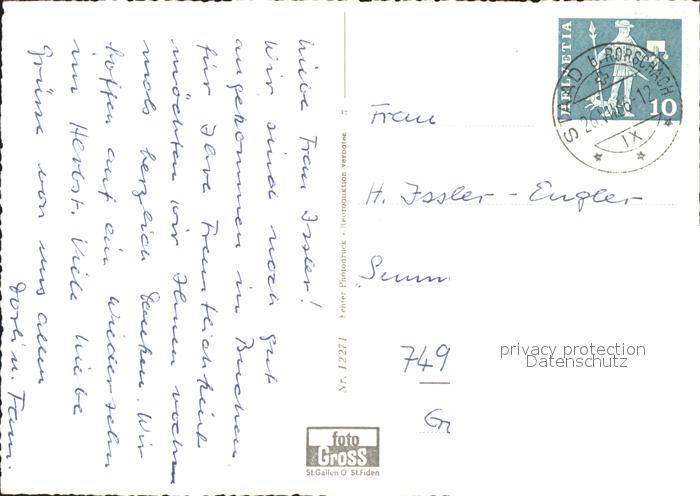 Liebe Frau Issler!
Wir sind noch gut
angekommen in Buchen.
für Ihre Freundlichkeit
möchten wir Ihnen noch
mals herzlich danken. Wir
hoffen auf ein Wiedersehn
im Herbst. Viele liebe
Grüsse von uns allen
Fam.
Nr. 12271 Echter Photodruck - Reproduktion verboten
foto
Gross
St.Gallen O St.Fiden
HELVETIA
10
STAAD b. RORSCHACH
IX
Frau
H. Issler - Engler
749
privacy protection
Datenschutz